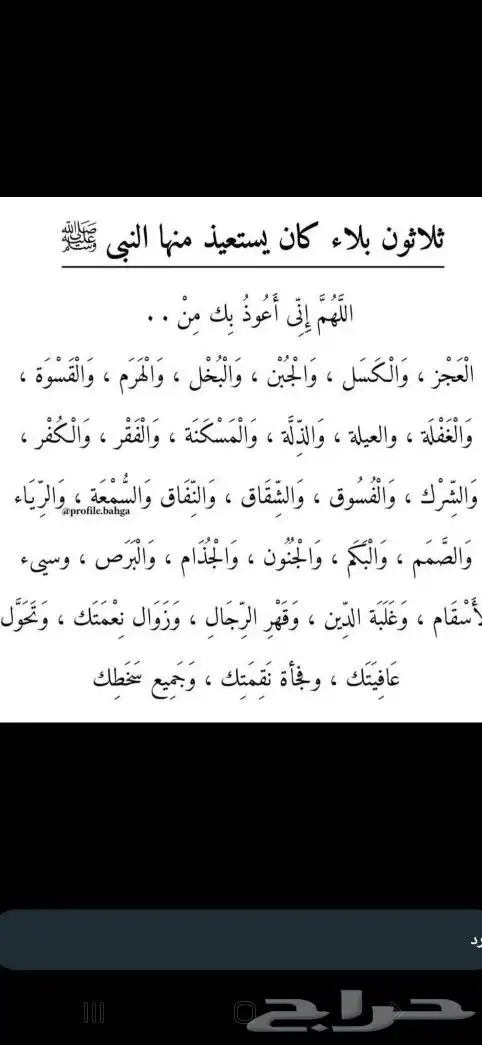 ثلاثون بلاء كان يستعيذ منها النبي ﷺ
اللَّهُمَّ إِنِّى أَعُوذُ بِك مِنْ . .
الْعَجْز ، وَالْكَسَل ، وَالْجُبْن ، وَالْبُخْل ، وَالْهَرَم ، وَالْقَسْوَة ،
وَالْغَفْلَة ، والعيلة ، وَالذِّلَّة ، وَالْمَسْكَنَة ، وَالْفَقْر ، وَالْكُفْر ،
وَالشِّرْك ، وَالْفُسُوق ، وَالشِّقَاق ، وَالنِّفَاق وَالسُّمْعَة ، وَالرِّيَاء
@profile.bahga
وَالصَّمَم ، وَالْبَكَم ، وَالْجُنُون ، وَالْجُذَام ، وَالْبَرَص ، وسيىء
لأَسْقَام ، وَغَلَبَة الدِّين ، وَقَهْرِ الرِّجَال ، وَزَوَال نِعْمَتَك ، وَتَحَوَّل
عَافِيَتَك ، وفجأة نَقِمَتِك ، وَجَمِيع سَخَطِك
رد
حراج